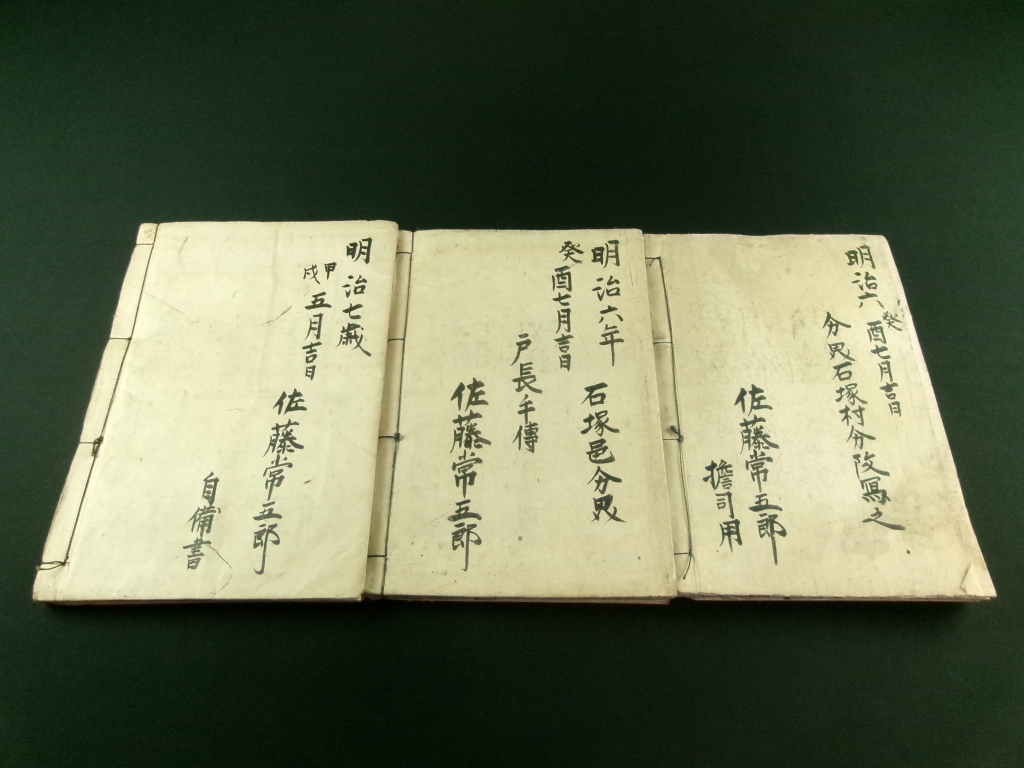 明治六癸酉七月吉日
分界石塚村分改写之
佐藤常五郎
擔司用
明治六年
癸酉七月吉日
石塚邑分界
戸長手傳
佐藤常五郎
明治七歳
甲戌五月吉日
佐藤常五郎
自備書